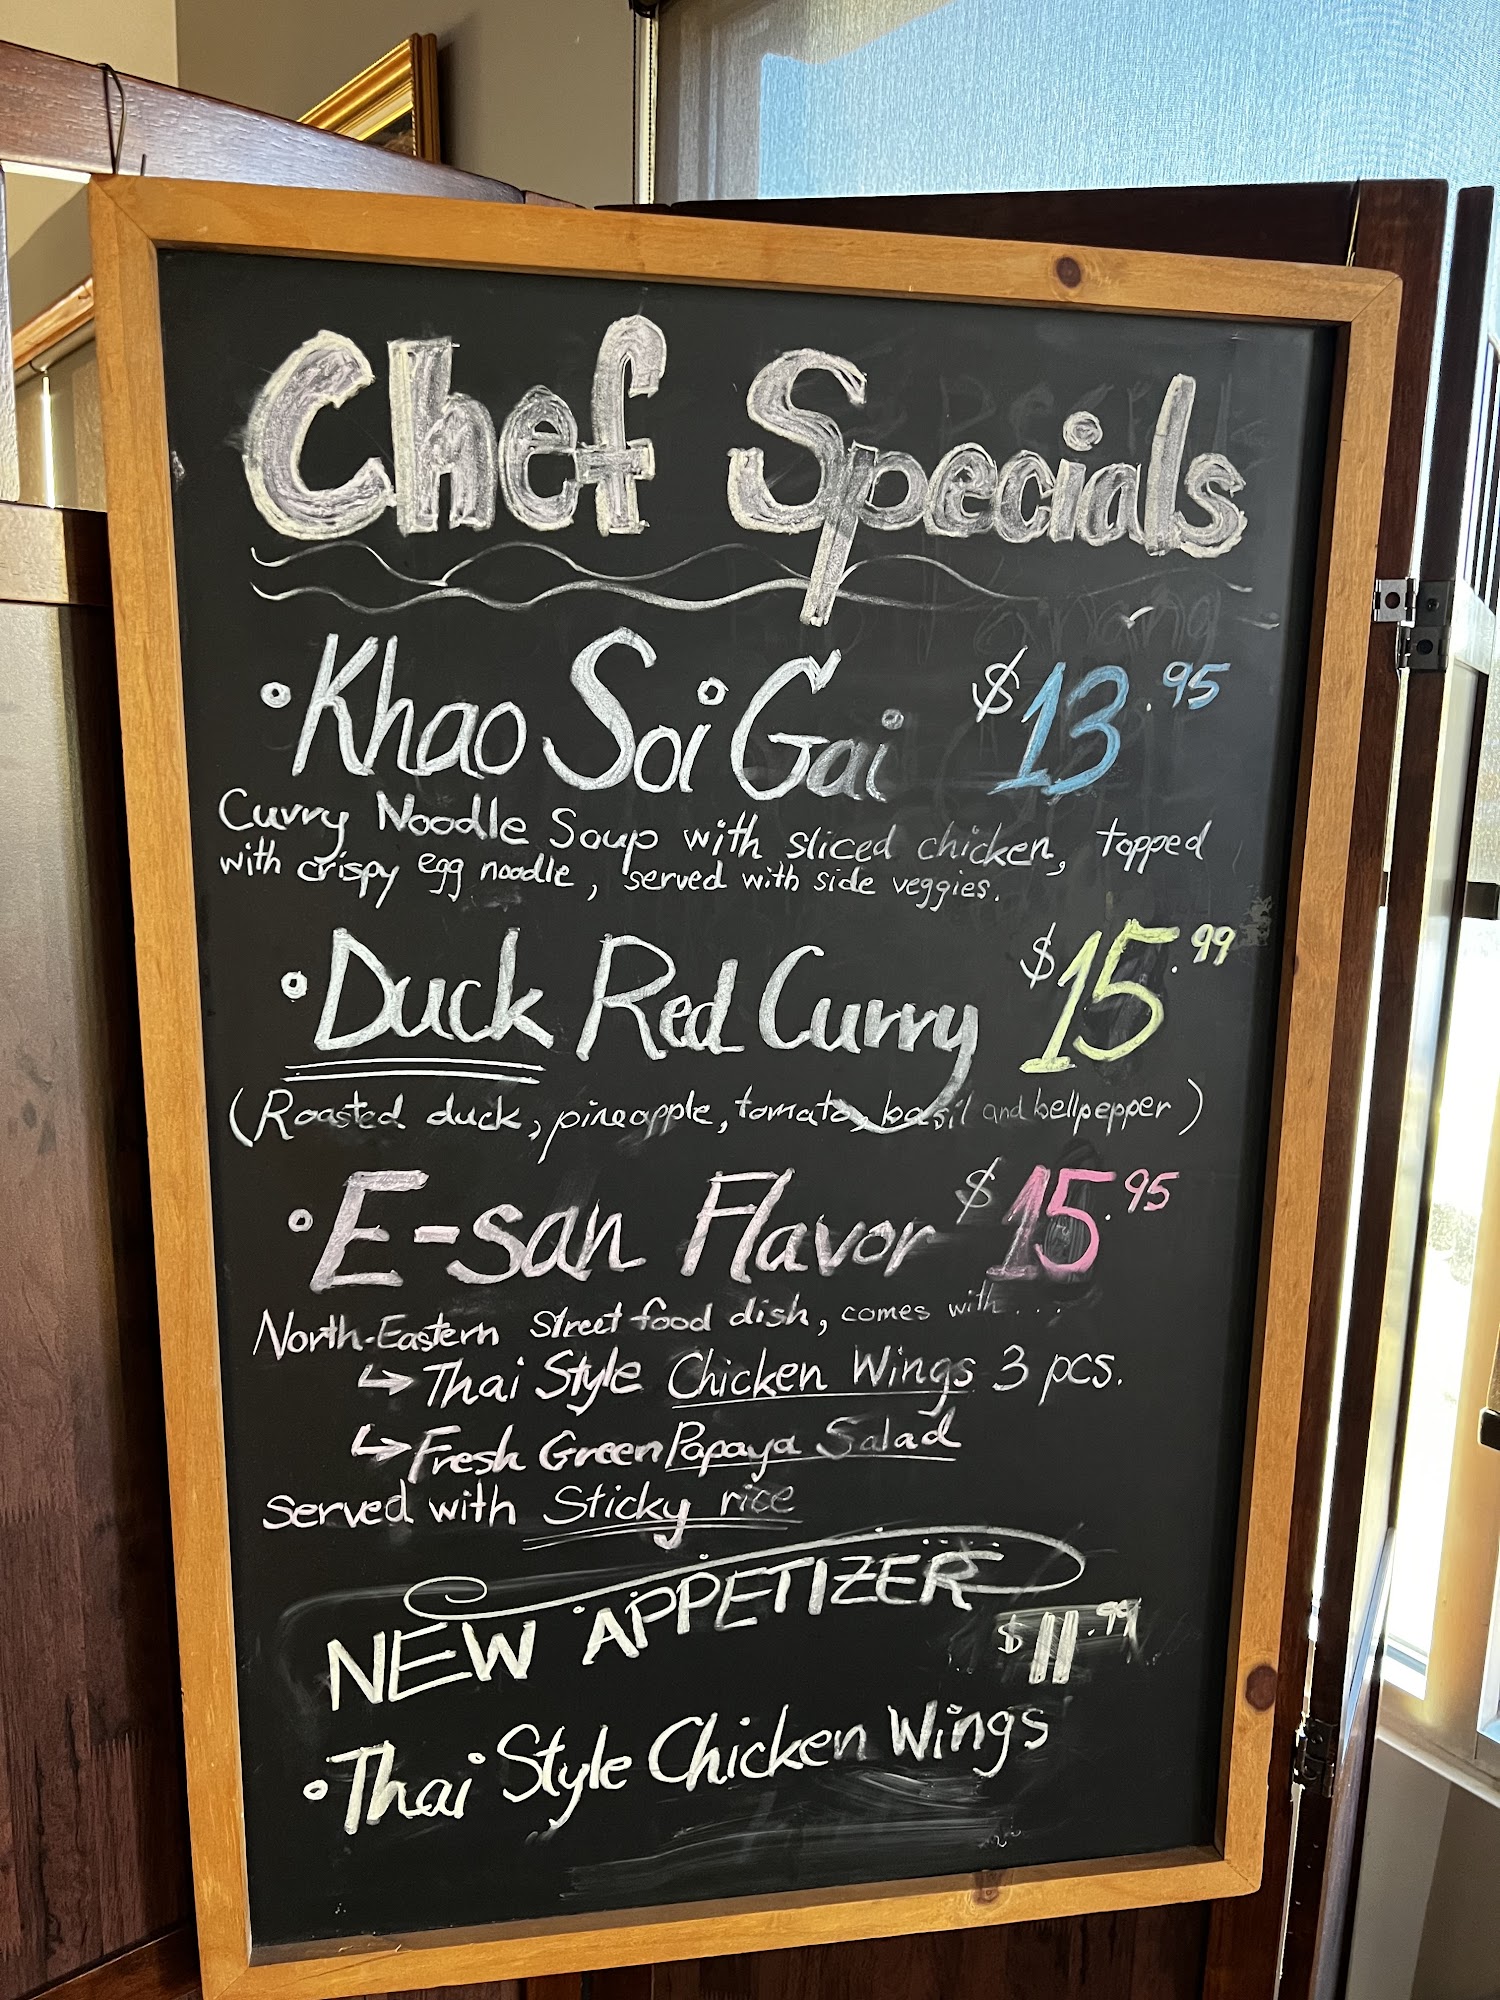 Chef Specials
• Khao Soi Gai $13.95
Curry Noodle Soup with sliced chicken, topped
with crispy egg noodle, served with side veggies.
• Duck Red Curry $15.99
(Roasted duck, pineapple, tomato, basil and bellpepper)
• E-san Flavor $15.95
North-Eastern Street food dish, comes with...
↳ Thai Style Chicken Wings 3 pcs.
↳ Fresh Green Papaya Salad
Served with Sticky rice
NEW APPETIZER $11.99
• Thai Style Chicken Wings